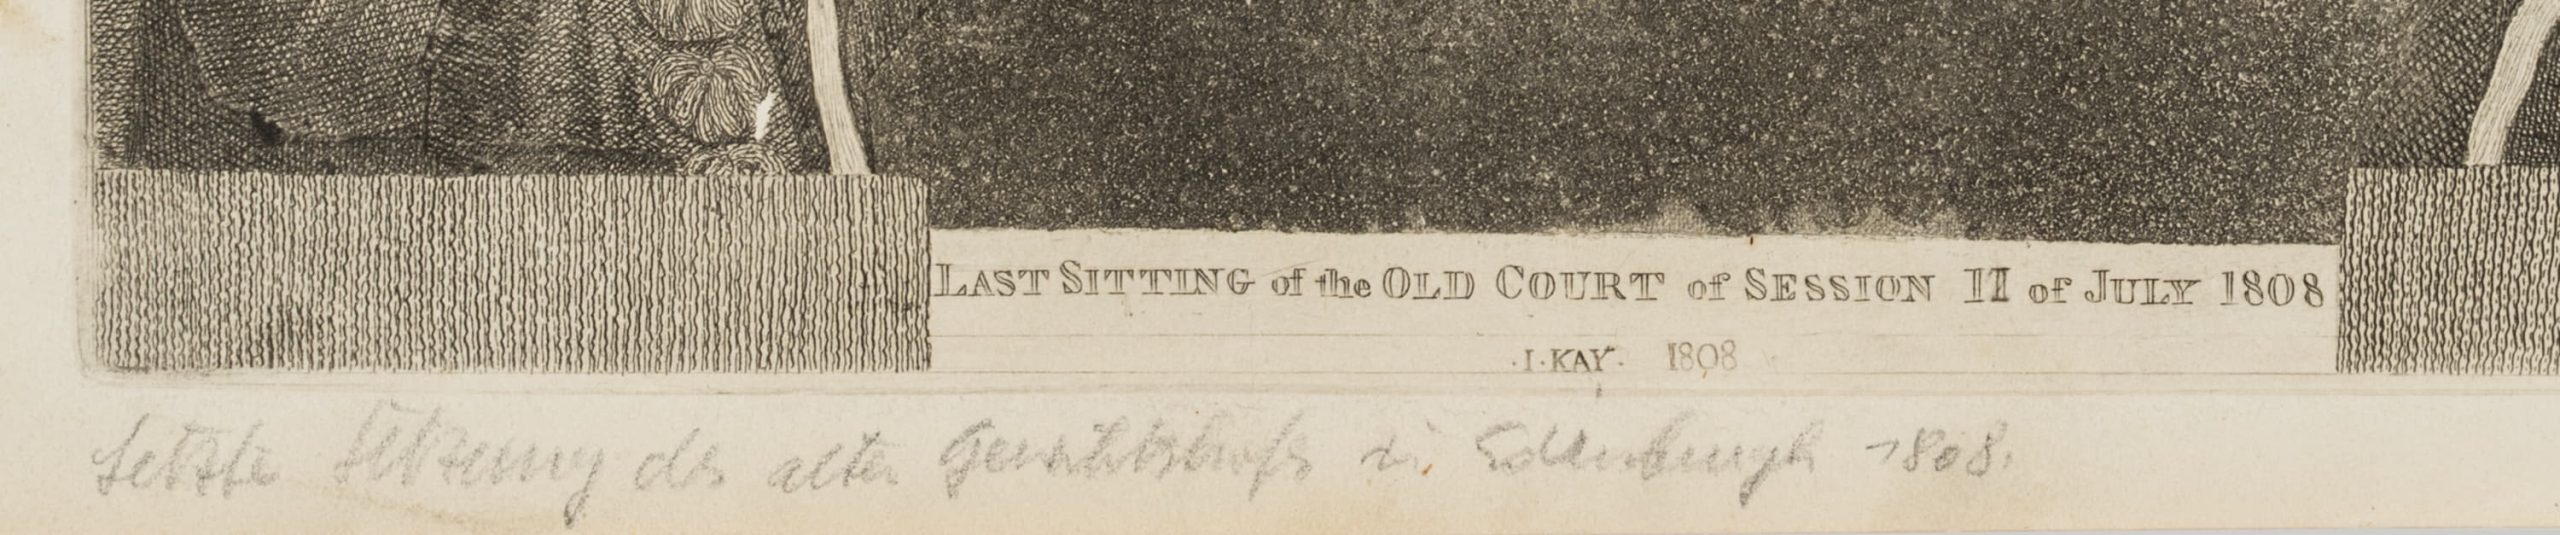 LAST SITTING of the OLD COURT of SESSION 11 of JULY 1808
·I·KAY· 1808
Letzte Sitzung des alten Gerichtshofs in Edenburgh 1808.